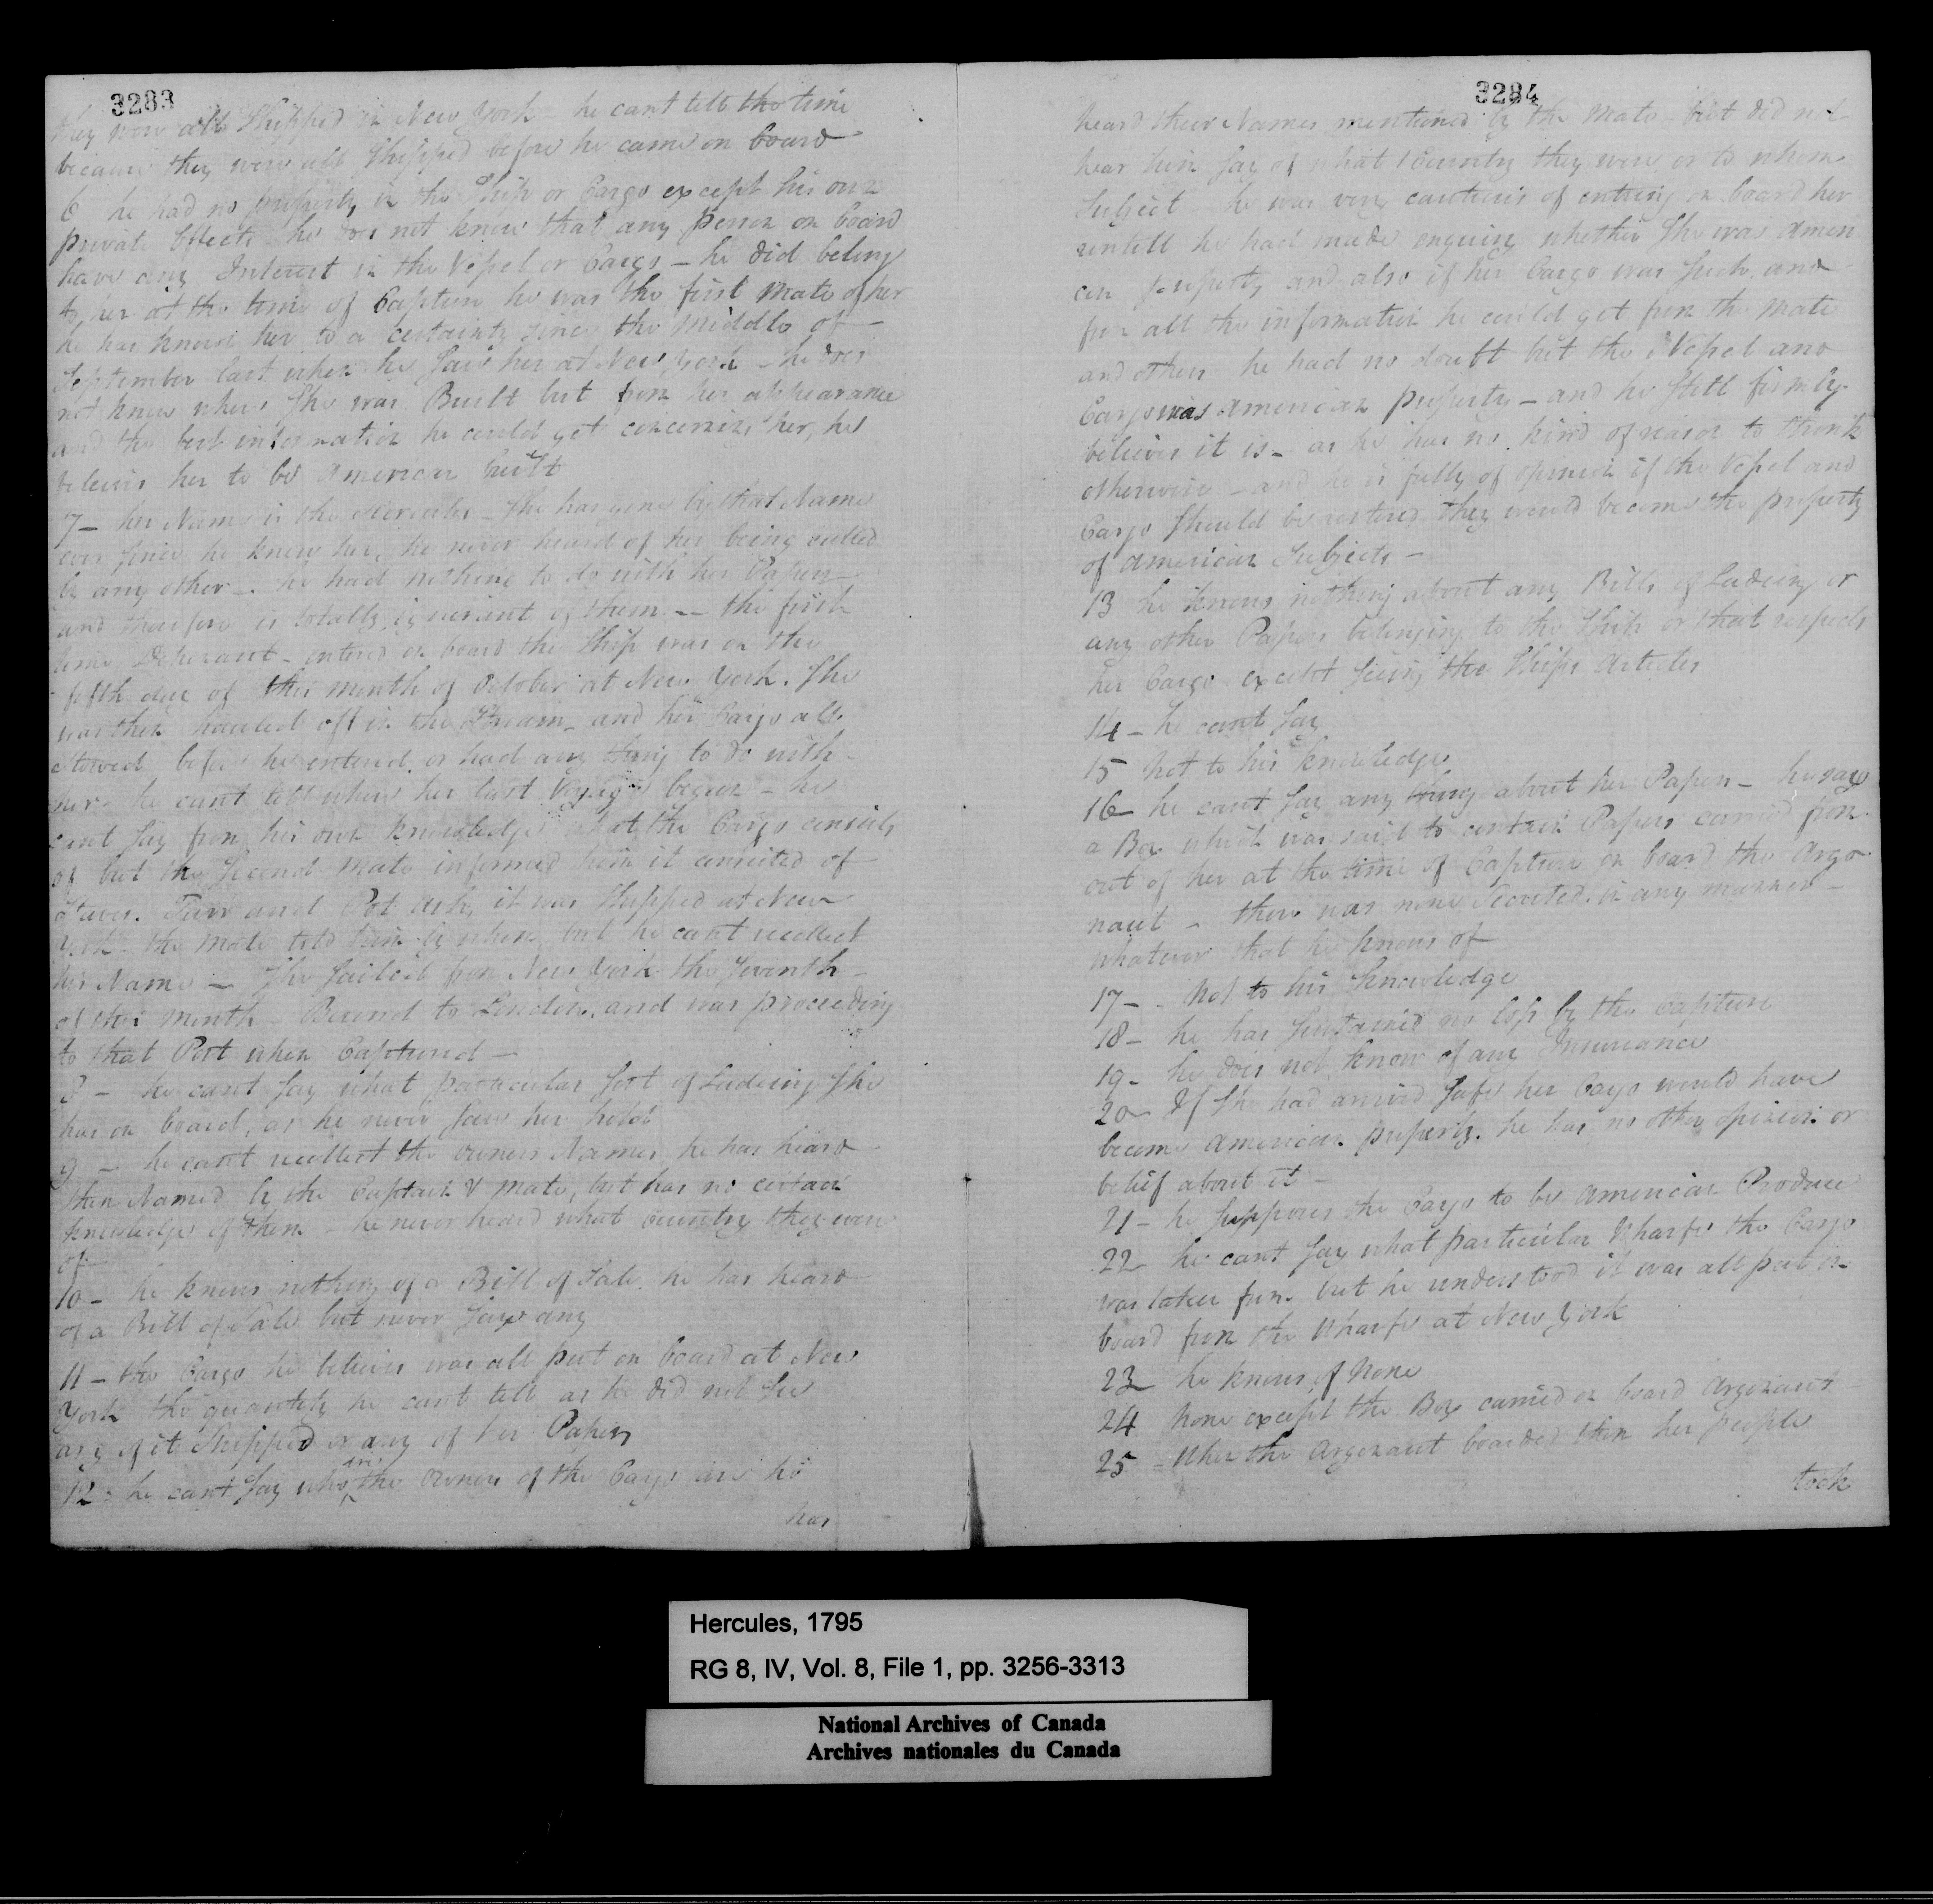 3283
they were all Shipped in New York - he cant tell the time
because they were all Shipped before he came on board
6 he had no property in the Ship or Cargo except his own
private Effects he does not know that any person on board
have any Interest in the Vessel or Cargo - he did belong
to her at the time of Capture he was the first Mate of her
he has known her to a certainty since the Middle of -
September last when he saw her at New York - he does
not know where She was Built but from her appearance
and the best information he could get concerning her, he
beleives her to be American built
7 - her Name is the Hercules - She has gone by that Name
ever since he knew her, he never heard of her being called
by any other - he had nothing to do with her Papers
and therefore is totally ignorant of them - the first
time Deponant - entered on board the Ship was on the
fifth day of this month of October at New York. She
was then hauled off in the Stream - and her Cargo all
Stowed before he entered, or had any thing to do with -
her - he cant tell when her last Voyage began - he
cant say from his own knowledge what the Cargo consists
of but the Second Mate informed him it consisted of
Staves. Tarr and Pot Ash, it was Shipped at New
York the Mate told him by whom but he cant recollect
his Name - She Sailed from New York the Seventh -
of this Month - Bound to London, and was proceeding
to that Port when Captured -
8 - he cant say what particular Sort of Ladeing She
has on board, as he never saw her hold
9 - he cant recollect the owners Names, he has heard
them Named by the Captain & Mate, but has no certain
knowledge of them - he never heard what country they were
of
10 - he knows nothing of a Bill of Sale. he has heard
of a Bill of Sale but never Saw any
11 - the Cargo he believes was all put on board at New
York the quantity he cant tell as he did not See
any of it Shipped or any of her Papers
12 - he cant say who are the owners of the Cargo are he
has
3284
heard their Names mentioned by the Mate - but did not
hear him say of what Country they were or to whom
Subject - he was very cautious of entring on board her
untill he had made enquiry whether She was Ameri
can property and also if her Cargo was Such, and
from all the information he could get from the Mate
and others he had no doubt but the Vessel and
Cargo was American property - and he Still firmly
believes it is - as he has no kind of reason to think
otherwise - and he is fully of opinion if the Vessel and
Cargo Should be restored they would become the property
of American Subjects -
13 he knows nothing about any Bills of Ladeing or
any other Papers belonging to the Ship or that respects
her Cargo except seeing the Ships Articles
14 - he cant say
15 Not to his knowledge
16 - he cant say any thing about her Papers - he saw
a Box which was said to contain Papers carried from
out of her at the time of Capture on board the Argo
naut - there was none Secreted in any manner -
whatever that he knows of
17 - Not to his knowledge
18 - he has Sustained no loss by the Capture
19 - he does not know of any Insurance
20 - If She had arrived Safe her Cargo would have
become American property. he has no other opinion or
belief about it -
21 - he Supposes the Cargo to be American Produce
22 he cant say what particular Wharfe the Cargo
was taken from but he understood it was all put on
board from the Wharfe at New York
23 he knows of None
24 None except the Box carried on board Argonaut
25 - When the Argonaut boarded them her people
took
Hercules, 1795
RG 8, IV, Vol. 8, File 1, pp. 3256-3313
National Archives of Canada
Archives nationales du Canada